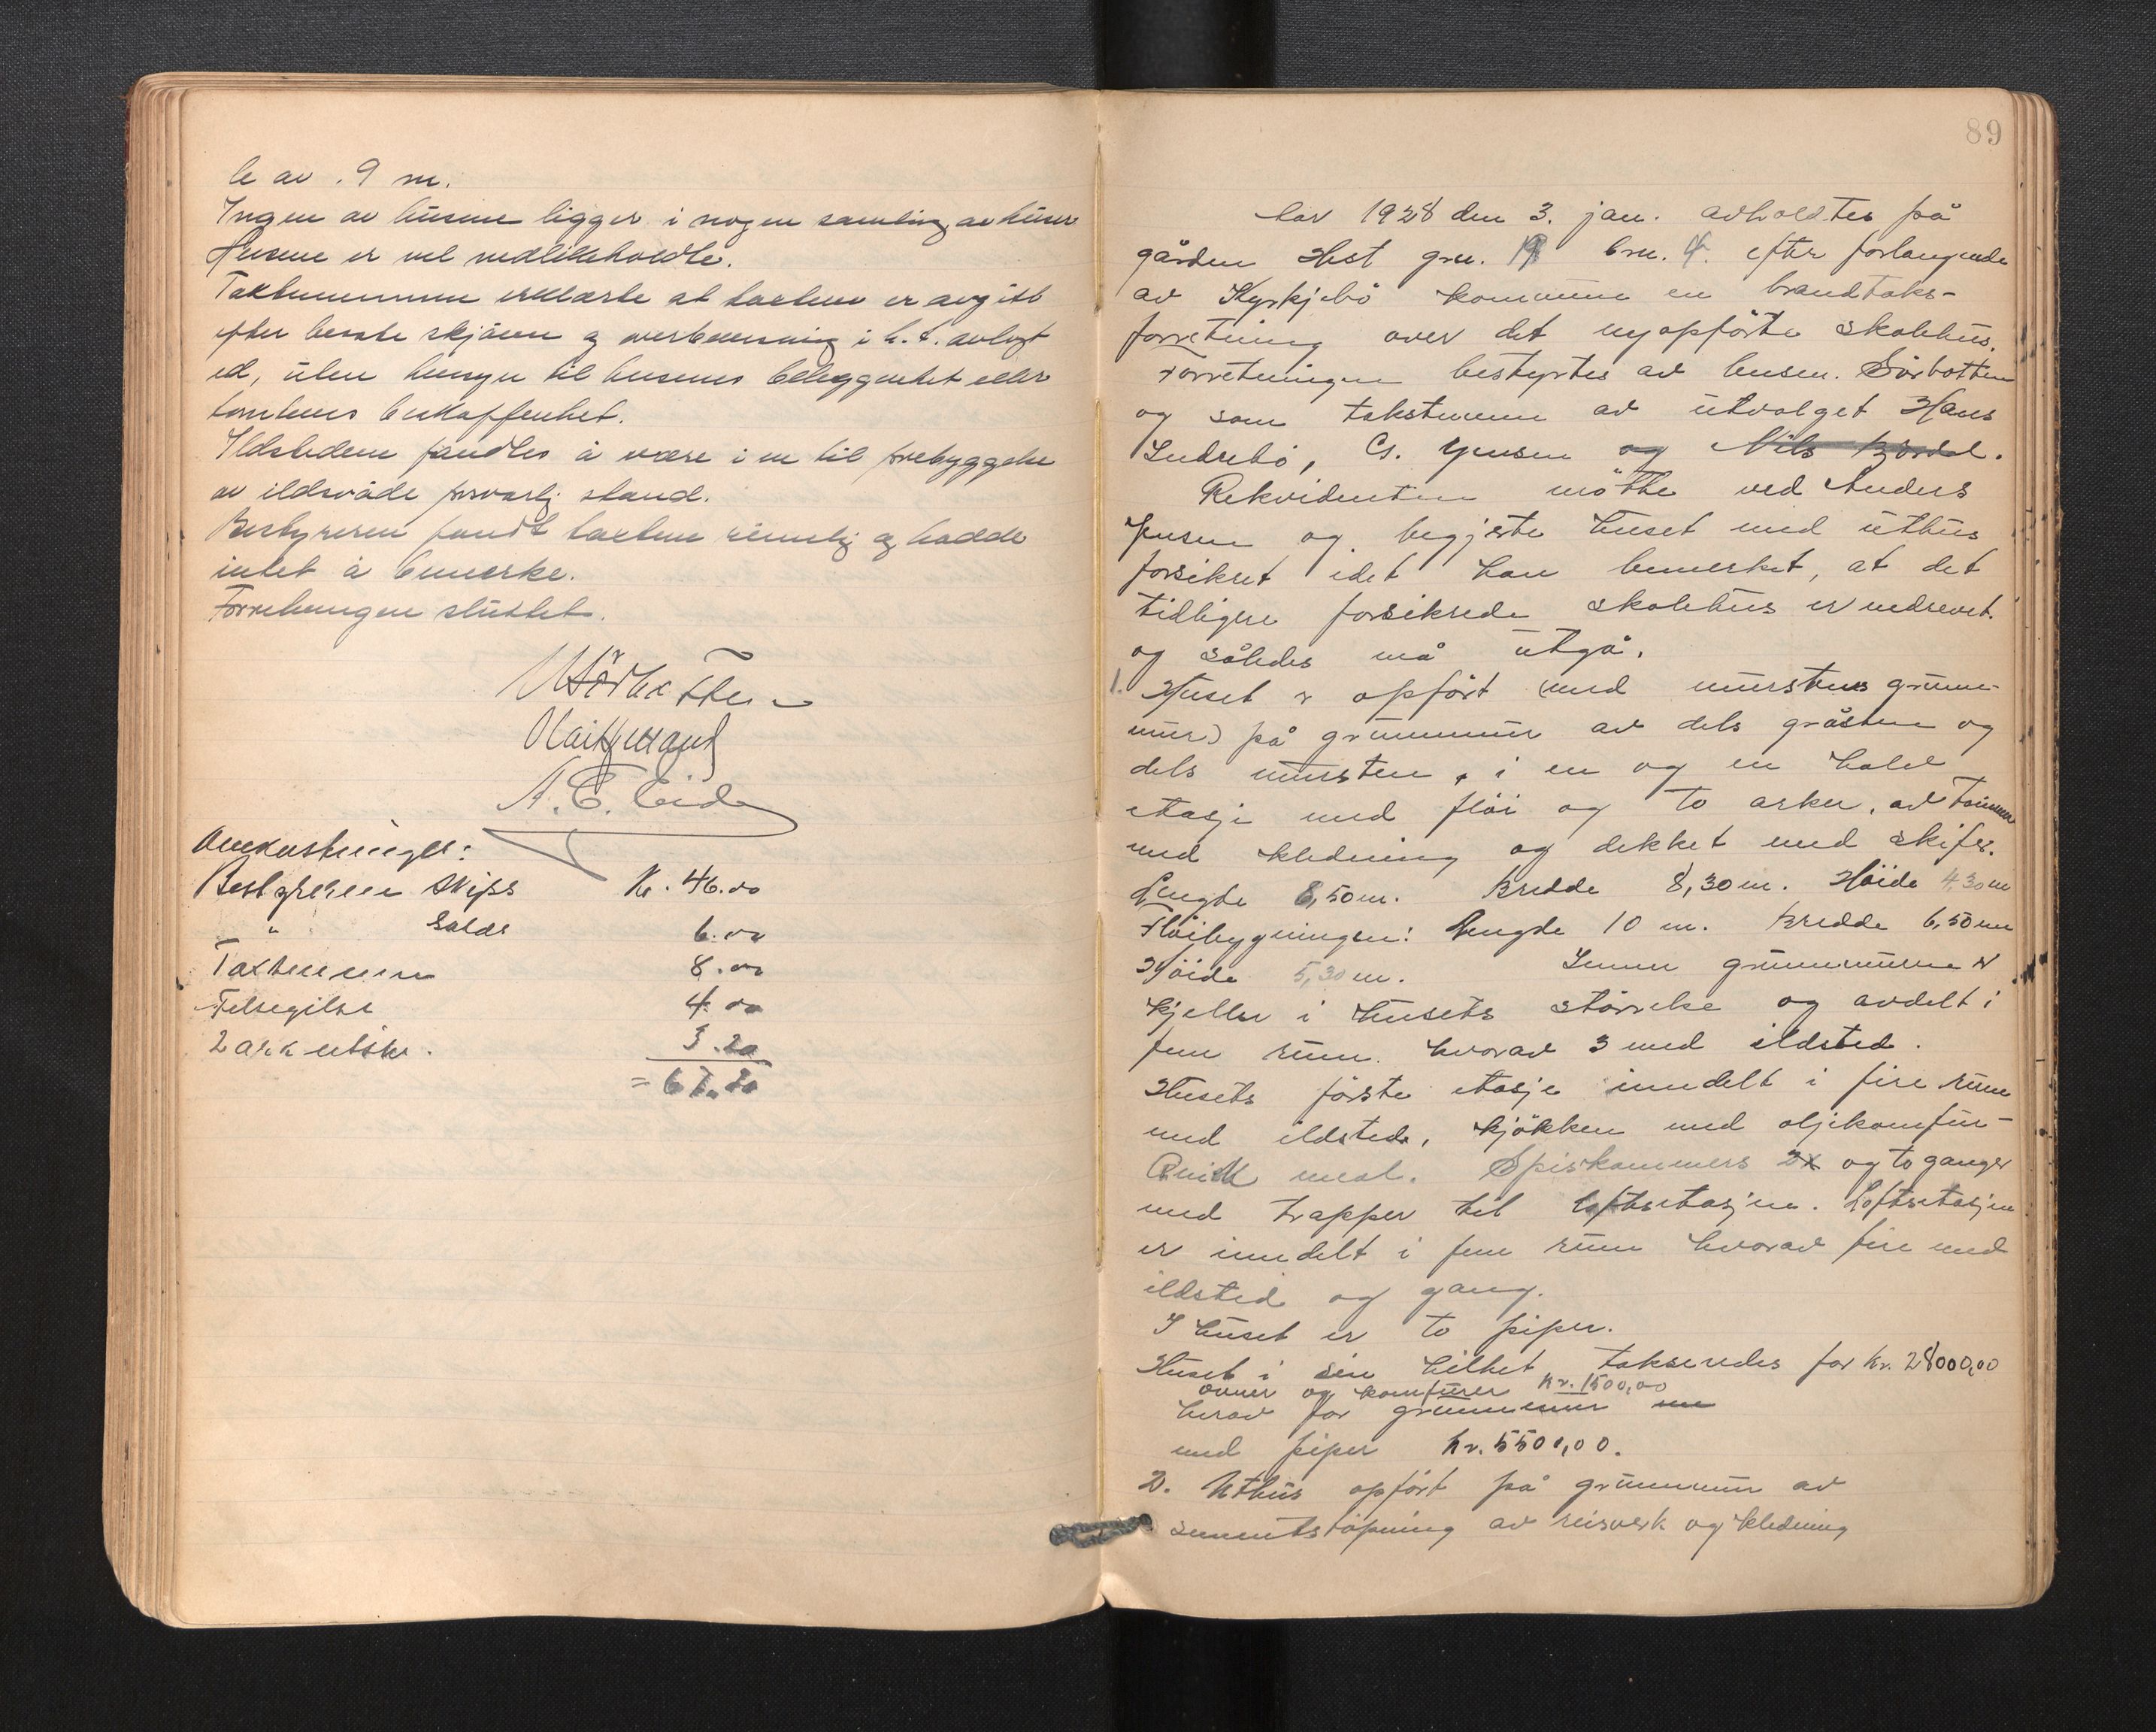 le av . 9 m.
Ingen av husene ligger i nogen samling av huser
Husene er vel vedlikeholdte.
Taxtmennene erklærte at taxten er avgitt
efter beste skjønn og overbevisning i h. t. avlagt
ed, uten hensyn til husenes beliggenhet eller
tomtens beskaffenhet.
Ildstedene fandtes å være i en til forebyggelse
av ildsvåde forsvarlig stand.
Bestyreren fandt taxten rimelig og hadde
intet å bemerke.
Forretningen sluttet.
Sørbotten
A. E. Eide
Omkostninger:
Bestyreren Skyss Kr. 46.00
" Salær 6.00
Taxtmennene 8.00
Følgegilde 4.00
2 ark utskr. 3.20
= 67.20
89
Aar 1928 den 3. jan. avholdtes på
gården Hest gnr. 19 bnr. 4. efter forlangende
av Kyrkjebø kommune en brandtaks-
forretning over det nyopførte skolehus.
Forretningen bestyrtes av lensm. Sørbotten
og som takstmenn av utvalget Hans
Inderbø, Cs. Jensen og Nils Bjordal.
Rekvidenten møtte ved Anders
Jensen og begjærte huset med uthus
forsikret idet han bemerket, at det
tidligere forsikrede skolehus er nedrevet.
og således må utgå.
1. Huset er opført (med murstens grunn-
mur) på grunnmur av dels gråsten og
dels mursten, i en og en halv
etasje med fløi og to arker, av tømmer
med kledning og dekket med skifer.
Lengde 8,50 m. Bredde 8,30 m. Høide 4,30 m
Fløibygningen: Lengde 10 m. Bredde 6,50 m
Høide 5,30 m. Innen grunnmurene er
kjeller i husets størrelse og avdelt i
fem rum. hvorav 3 med ildsted.
Husets første etasje inndelt i fire rum
med ildsted, kjøkken med oljekomfur-
Quick meal. Spiskammers 2x og to ganger
med trapper til loftsetasjen. Loftsetasjen
er inndelt i fem rum hvorav fire med
ildsted og gang.
I huset er to piper.
Huset i sin helhet takseredes for kr. 28000,00
ovner og komfurer Kr. 1500,00
herav for grunnmur
med piper kr. 5500,00.
2. Uthus opført på grunnmur av
sementstøpning av reisverk og kledning